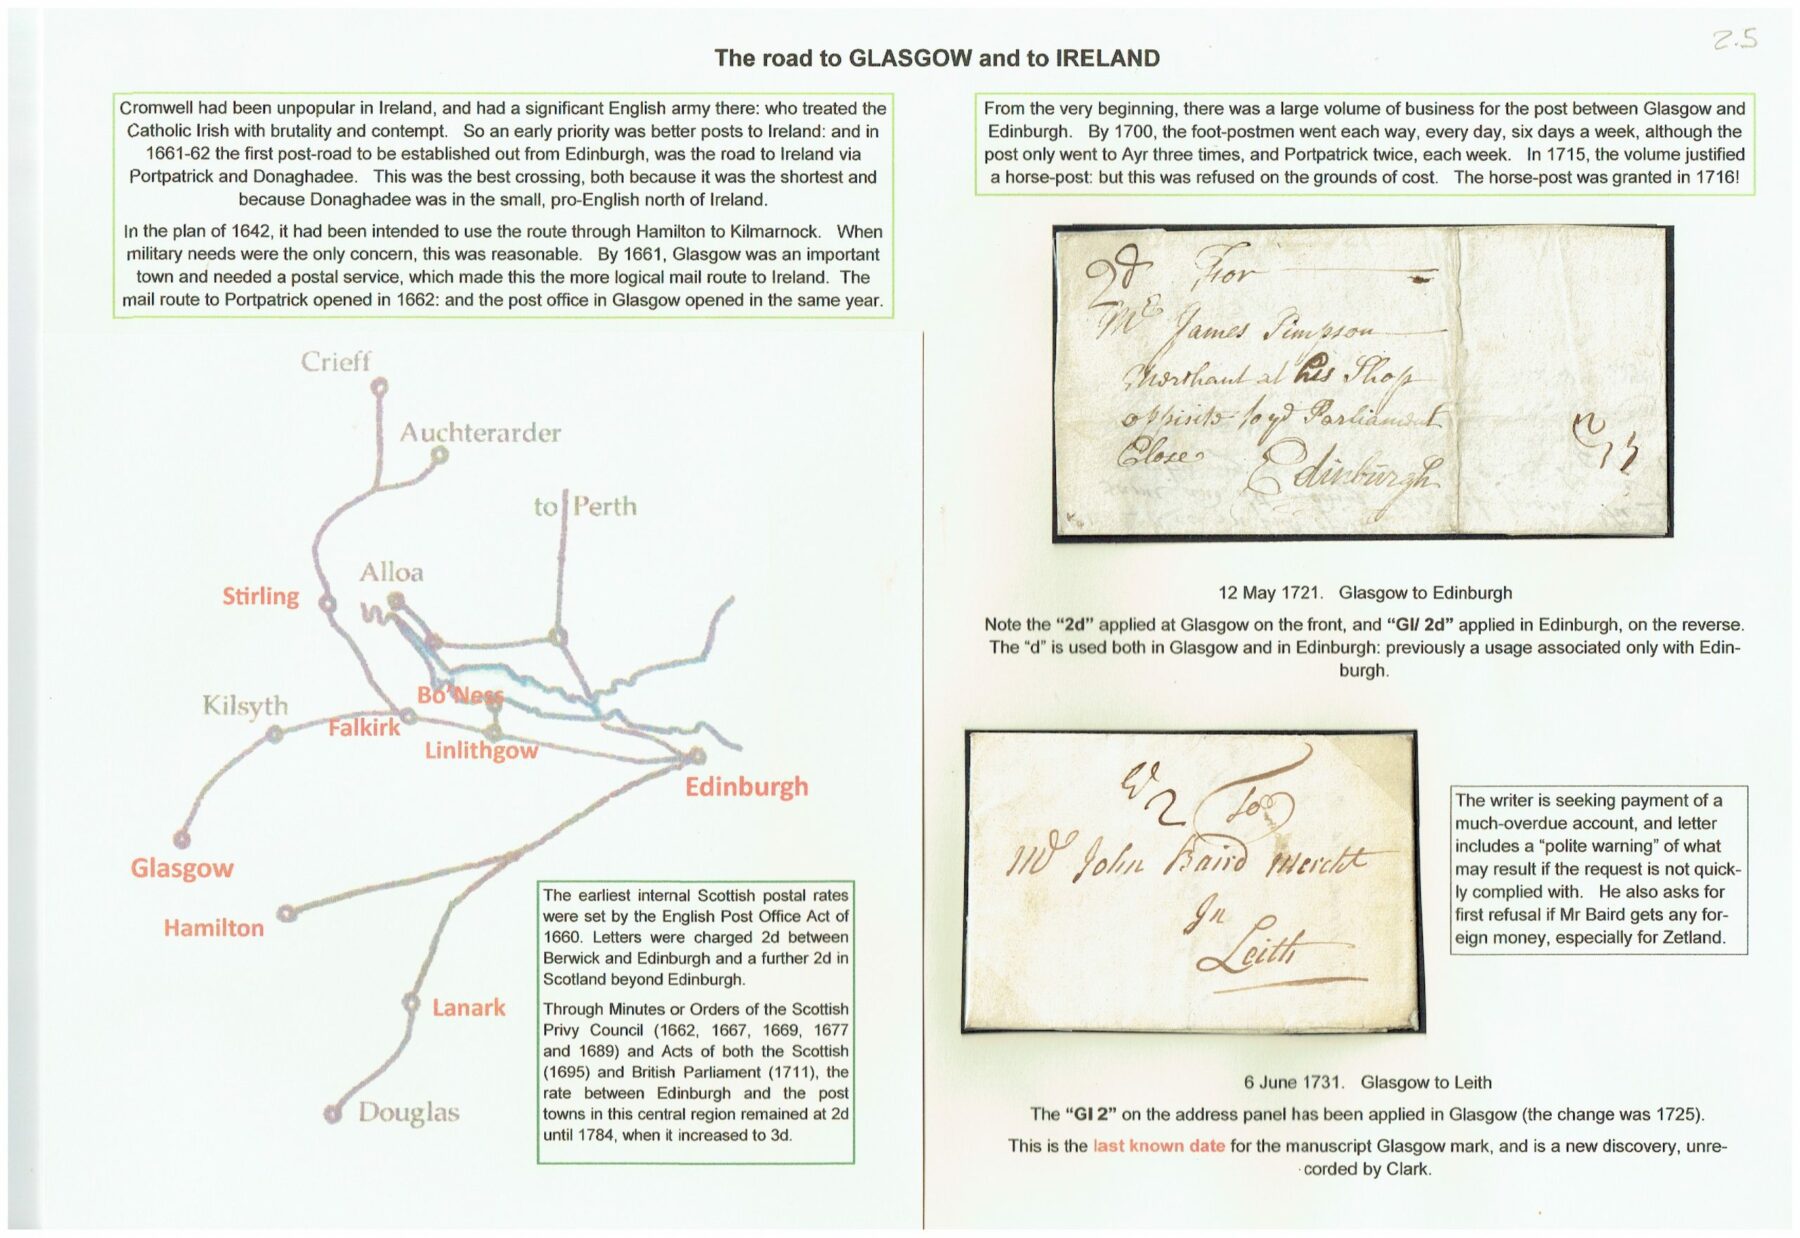 2.5
The road to GLASGOW and to IRELAND
Cromwell had been unpopular in Ireland, and had a significant English army there: who treated the
Catholic Irish with brutality and contempt. So an early priority was better posts to Ireland: and in
1661-62 the first post-road to be established out from Edinburgh, was the road to Ireland via
Portpatrick and Donaghadee. This was the best crossing, both because it was the shortest and
because Donaghadee was in the small, pro-English north of Ireland.
In the plan of 1642, it had been intended to use the route through Hamilton to Kilmarnock. When
military needs were the only concern, this was reasonable. By 1661, Glasgow was an important
town and needed a postal service, which made this the more logical mail route to Ireland. The
mail route to Portpatrick opened in 1662: and the post office in Glasgow opened in the same year.
Crieff
Auchterarder
to Perth
Alloa
Stirling
Bo'Ness
Kilsyth
Falkirk
Linlithgow
Edinburgh
Glasgow
Hamilton
Lanark
Douglas
The earliest internal Scottish postal rates
were set by the English Post Office Act of
1660. Letters were charged 2d between
Berwick and Edinburgh and a further 2d in
Scotland beyond Edinburgh.
Through Minutes or Orders of the Scottish
Privy Council (1662, 1667, 1669, 1677
and 1689) and Acts of both the Scottish
(1695) and British Parliament (1711), the
rate between Edinburgh and the post
towns in this central region remained at 2d
until 1784, when it increased to 3d.
From the very beginning, there was a large volume of business for the post between Glasgow and
Edinburgh. By 1700, the foot-postmen went each way, every day, six days a week, although the
post only went to Ayr three times, and Portpatrick twice, each week. In 1715, the volume justified
a horse-post: but this was refused on the grounds of cost. The horse-post was granted in 1716!
2d For
Mr James Simpson
Merchant at his Shop
oppisite to yd Parliament
Close Edinburgh
12 May 1721. Glasgow to Edinburgh
Note the "2d" applied at Glasgow on the front, and "Gl/ 2d" applied in Edinburgh, on the reverse.
The "d" is used both in Glasgow and in Edinburgh: previously a usage associated only with Edin-
burgh.
2 To
Mr John Baird Mercht
In
Leith
The writer is seeking payment of a
much-overdue account, and letter
includes a "polite warning" of what
may result if the request is not quick-
ly complied with. He also asks for
first refusal if Mr Baird gets any for-
eign money, especially for Zetland.
6 June 1731. Glasgow to Leith
The "Gl 2" on the address panel has been applied in Glasgow (the change was 1725).
This is the last known date for the manuscript Glasgow mark, and is a new discovery, unre-
corded by Clark.